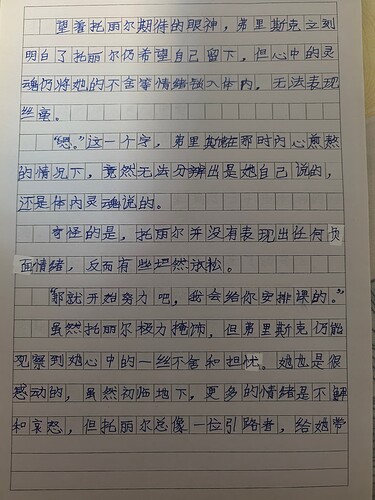 望着托丽尔期待的眼神，弗里斯克立刻
明白了托丽尔仍希望自己留下，但心中的灵
魂仍将她的不舍等情绪融入体内，无法表现
丝毫。
“嗯。”这一个字，弗里斯克在那时内心煎熬
的情况下，竟然无法分辨出是她自己说的，
还是体内灵魂说的。
奇怪的是，托丽尔并没有表现出任何负
面情绪，反而有些坦然放松。
“那就开始努力吧，我会给你安排课的。”
虽然托丽尔极力掩饰，但弗里斯克仍能
观察到她心中的一丝不舍和担忧。她也是很
感动的，虽然初临地下，更多的情绪是不解
和哀怒，但托丽尔总像一位引路者，给她带